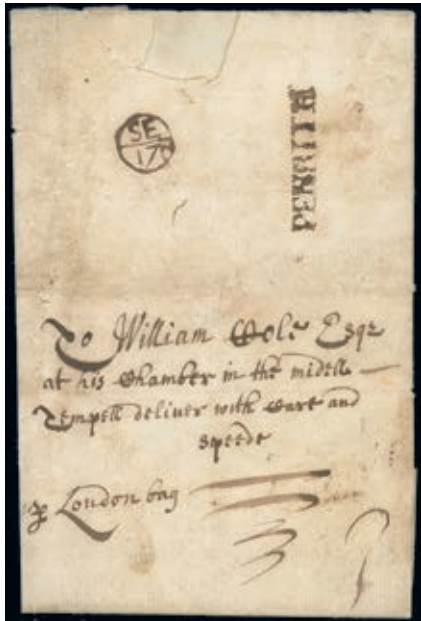 SE
17
PENRITH
To William Cole Esqr
at his Chamber in the midell
Tempell deliver with Care and
Speede
London bag